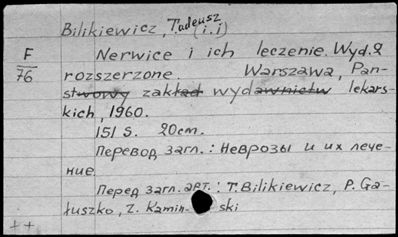 Bilikiewicz, Tadeusz (i.i)
F
76
Nerwice i ich leczenie. Wyd. 2
rozszerzone. Warszawa, Pan-
stwowy zakład wydawnictw lekars-
kich, 1960.
151 s. 20cm.
Перевод загл.: Неврозы и их лече-
ние
Перед загл. авт.: T. Bilikiewicz, P. Ga-
łuszko, Z. Kamin- ski
++